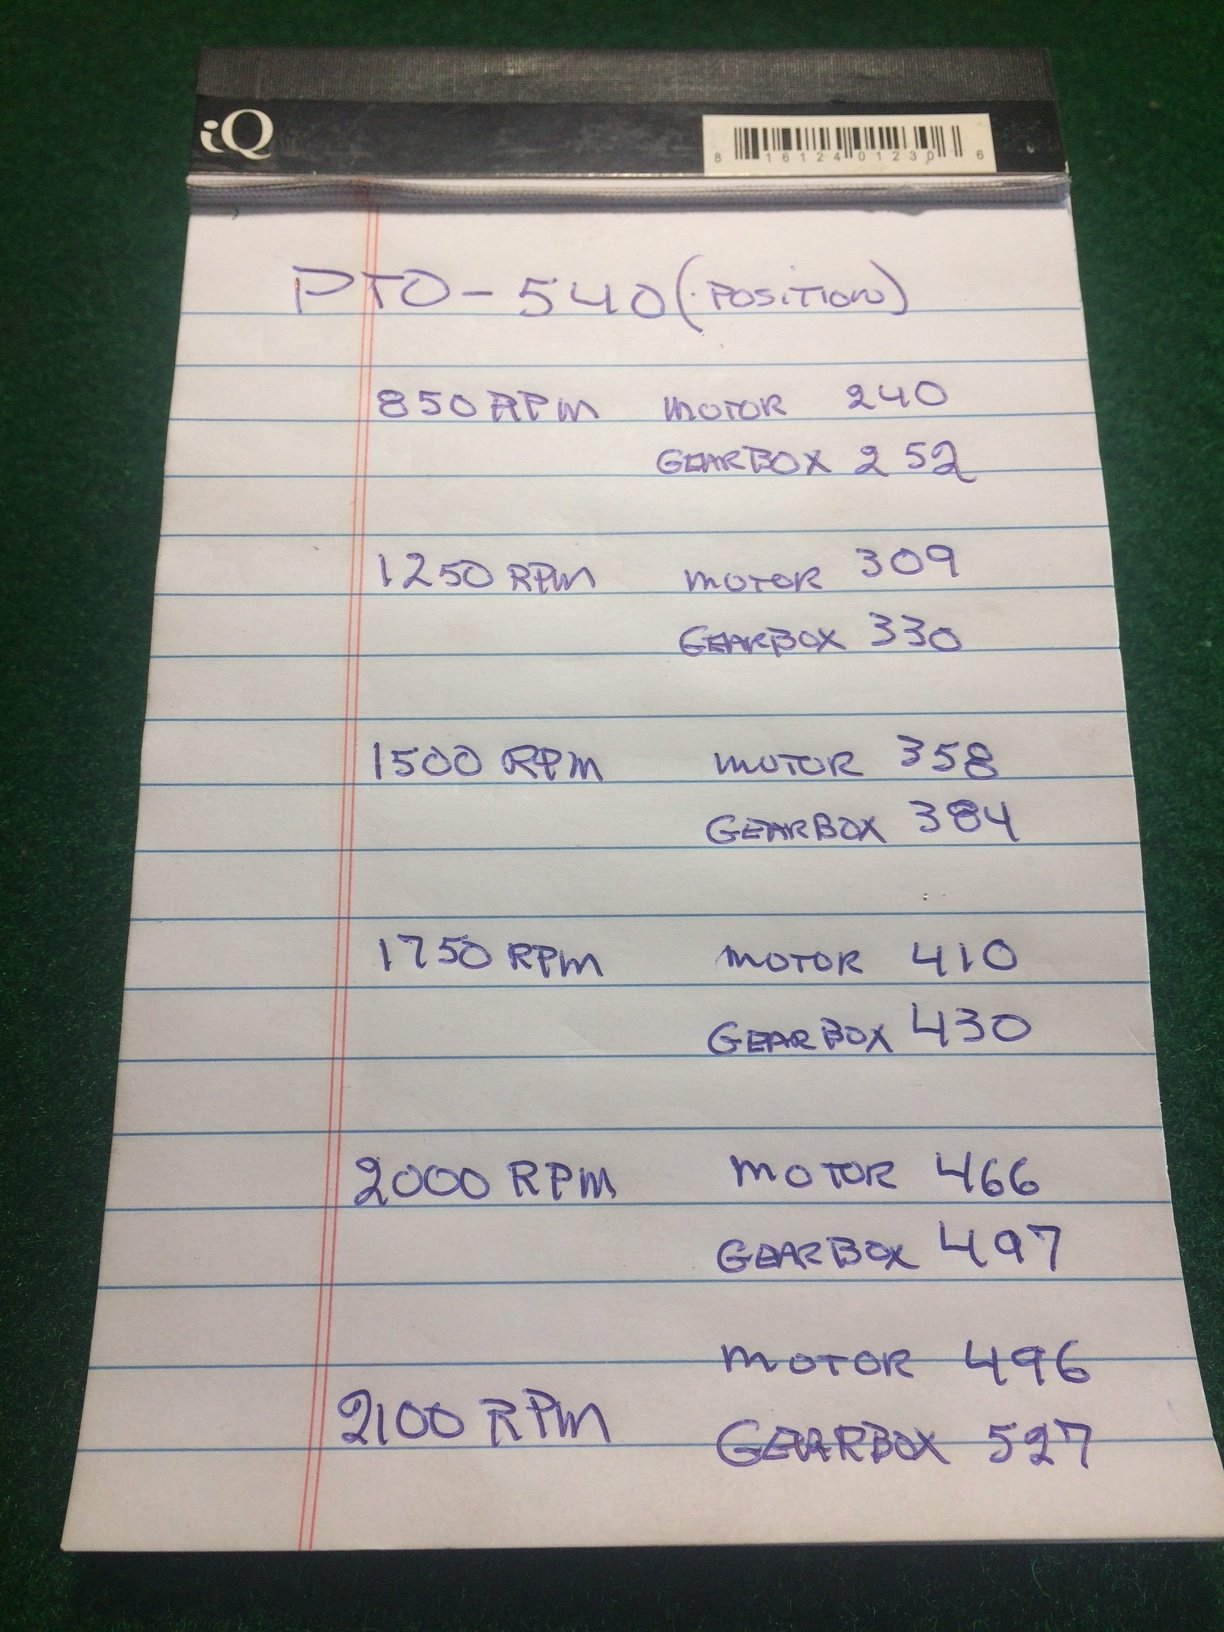 iQ
8 16124 01230 6
PTO-540 (POSITION)
850 RPM MOTOR 240
GEARBOX 252
1250 RPM MOTOR 309
GEARBOX 330
1500 RPM MOTOR 358
GEARBOX 384
1750 RPM MOTOR 410
GEARBOX 430
2000 RPM MOTOR 466
GEARBOX 497
MOTOR 496
2100 RPM
GEARBOX 527